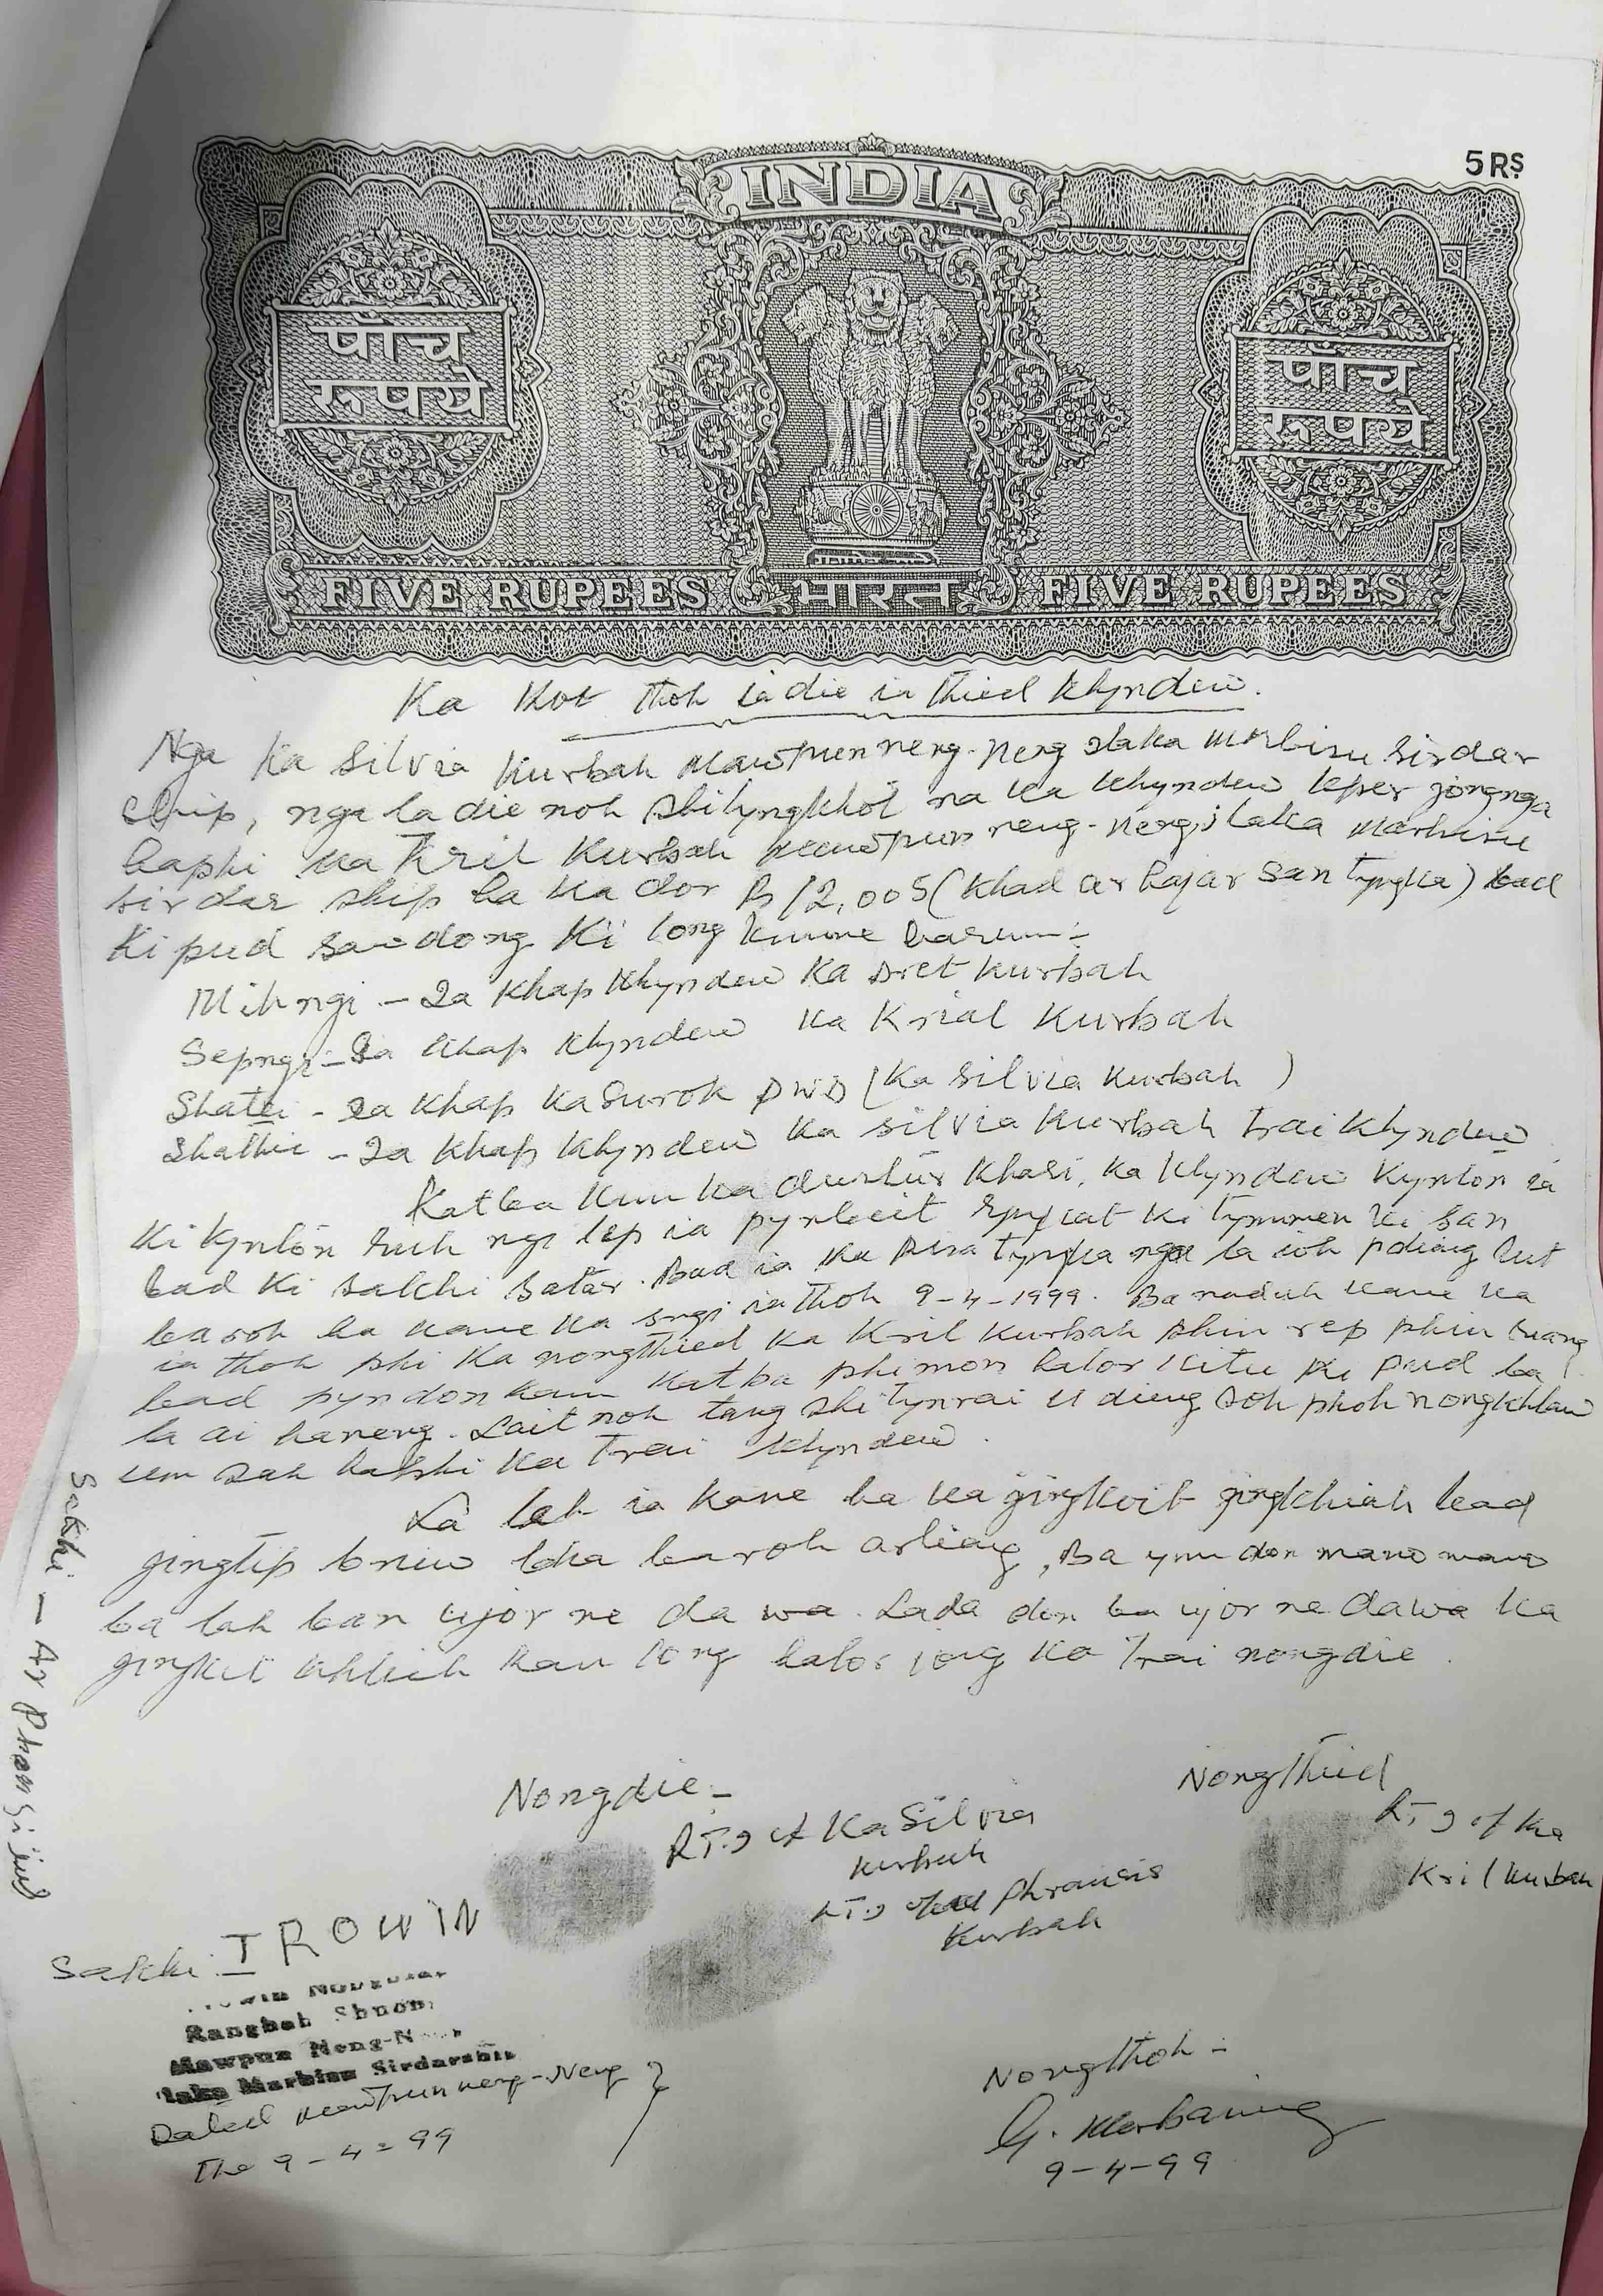 5 RS
INDIA
पाँच
रूपये
पाँच
रूपये
FIVE RUPEES भारत FIVE RUPEES
Ka Kot thoh ia die ia thied khyndew.
Nga Ka Silvia Kurbah Mawpun neng-neng Ilaka Marbisu Sirdar
ship, nga la die noh shilyngkhot na ka khyndew kper jongnga
haphi Ka Kril Kurbah Mawpun neng-neng, Ilaka Marbisu
Sirdar ship ha ka dor Rs 12,005 (Khad ar hajar san tyngka) bad
Ki pud sawdong Ki long kumne harum:-
Mihngi - Ia Khap Khyndew Ka Dret Kurbah
Sepngi - Ia Khap Khyndew Ka Krial Kurbah
Shatei - Ia Khap Ka Surok PWD (Ka Silvia Kurbah)
Shathie - Ia Khap Khyndew Ka Silvia Kurbah trai Khyndew
Katba kum ka dustur Khasi, Ka Khyndew Kynton ia
Ki Kynton ruh ngi lep ia pynbeit ki tymmen ki san
bad Ki sakhi satar. Bad ia ka pisa tyngka nga la ioh pdiang lut
baroh ha kane ka sngi ia thoh 9-4-1999. Ba naduh kane ka
ia thoh phi Ka nongthied Ka Kril Kurbah phin rep phin
bad pyndonkam katba phi mon halor kitu ki pud ba
la ai haneng. Lait noh tang shi tynrai U dieng soh phoh nongkhlaw
um sah hapshi Ka trai Khyndew.
La leh ia kane ba ka jingkoit jingkhiah bad
jingtip briew bha baroh arliang, Ba ynnu don mano mano
ba lah ban ujor ne dawa. Lada don ba ujor ne dawa ka
jingkit khlieh kan long halor jong ka trai nongdie.
Nongdie -
Nongthied
R.T.I of Ka Silvia
Kurbah
R.T.I of Ka
Kril Kurbah
R.T.I of Phrancis
Kurbah
Sakhi - IROWIN
Rangbah Shnong
Mawpun Neng-N
Ilaka Marbisu Sirdarship
Dated Mawpun neng-Neng
The 9-4-99
Nongthoh -
G. Kharbaning
9-4-99
Sakhi -